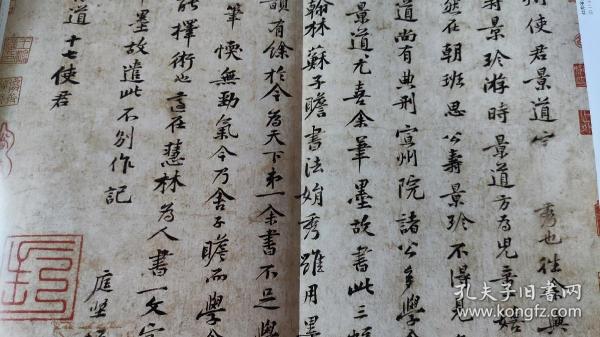 使君景道宗秀也往與
壽景珍游時景道方為兒童嬉
然在朝班思公壽景珍不得見
道尚有典刑宣州院諸公多學
景道尤喜余筆墨故書此三幅
翰林蘇子瞻書法娟秀雖用墨
韻有餘於今為天下第一余書不足學
筆愞無勁氣今乃舍子瞻而學
能擇術也適在慧林為人書一文字
墨故遣此不別作記
庭堅
道十七使君
孔夫子旧书网
www.kongfz.com